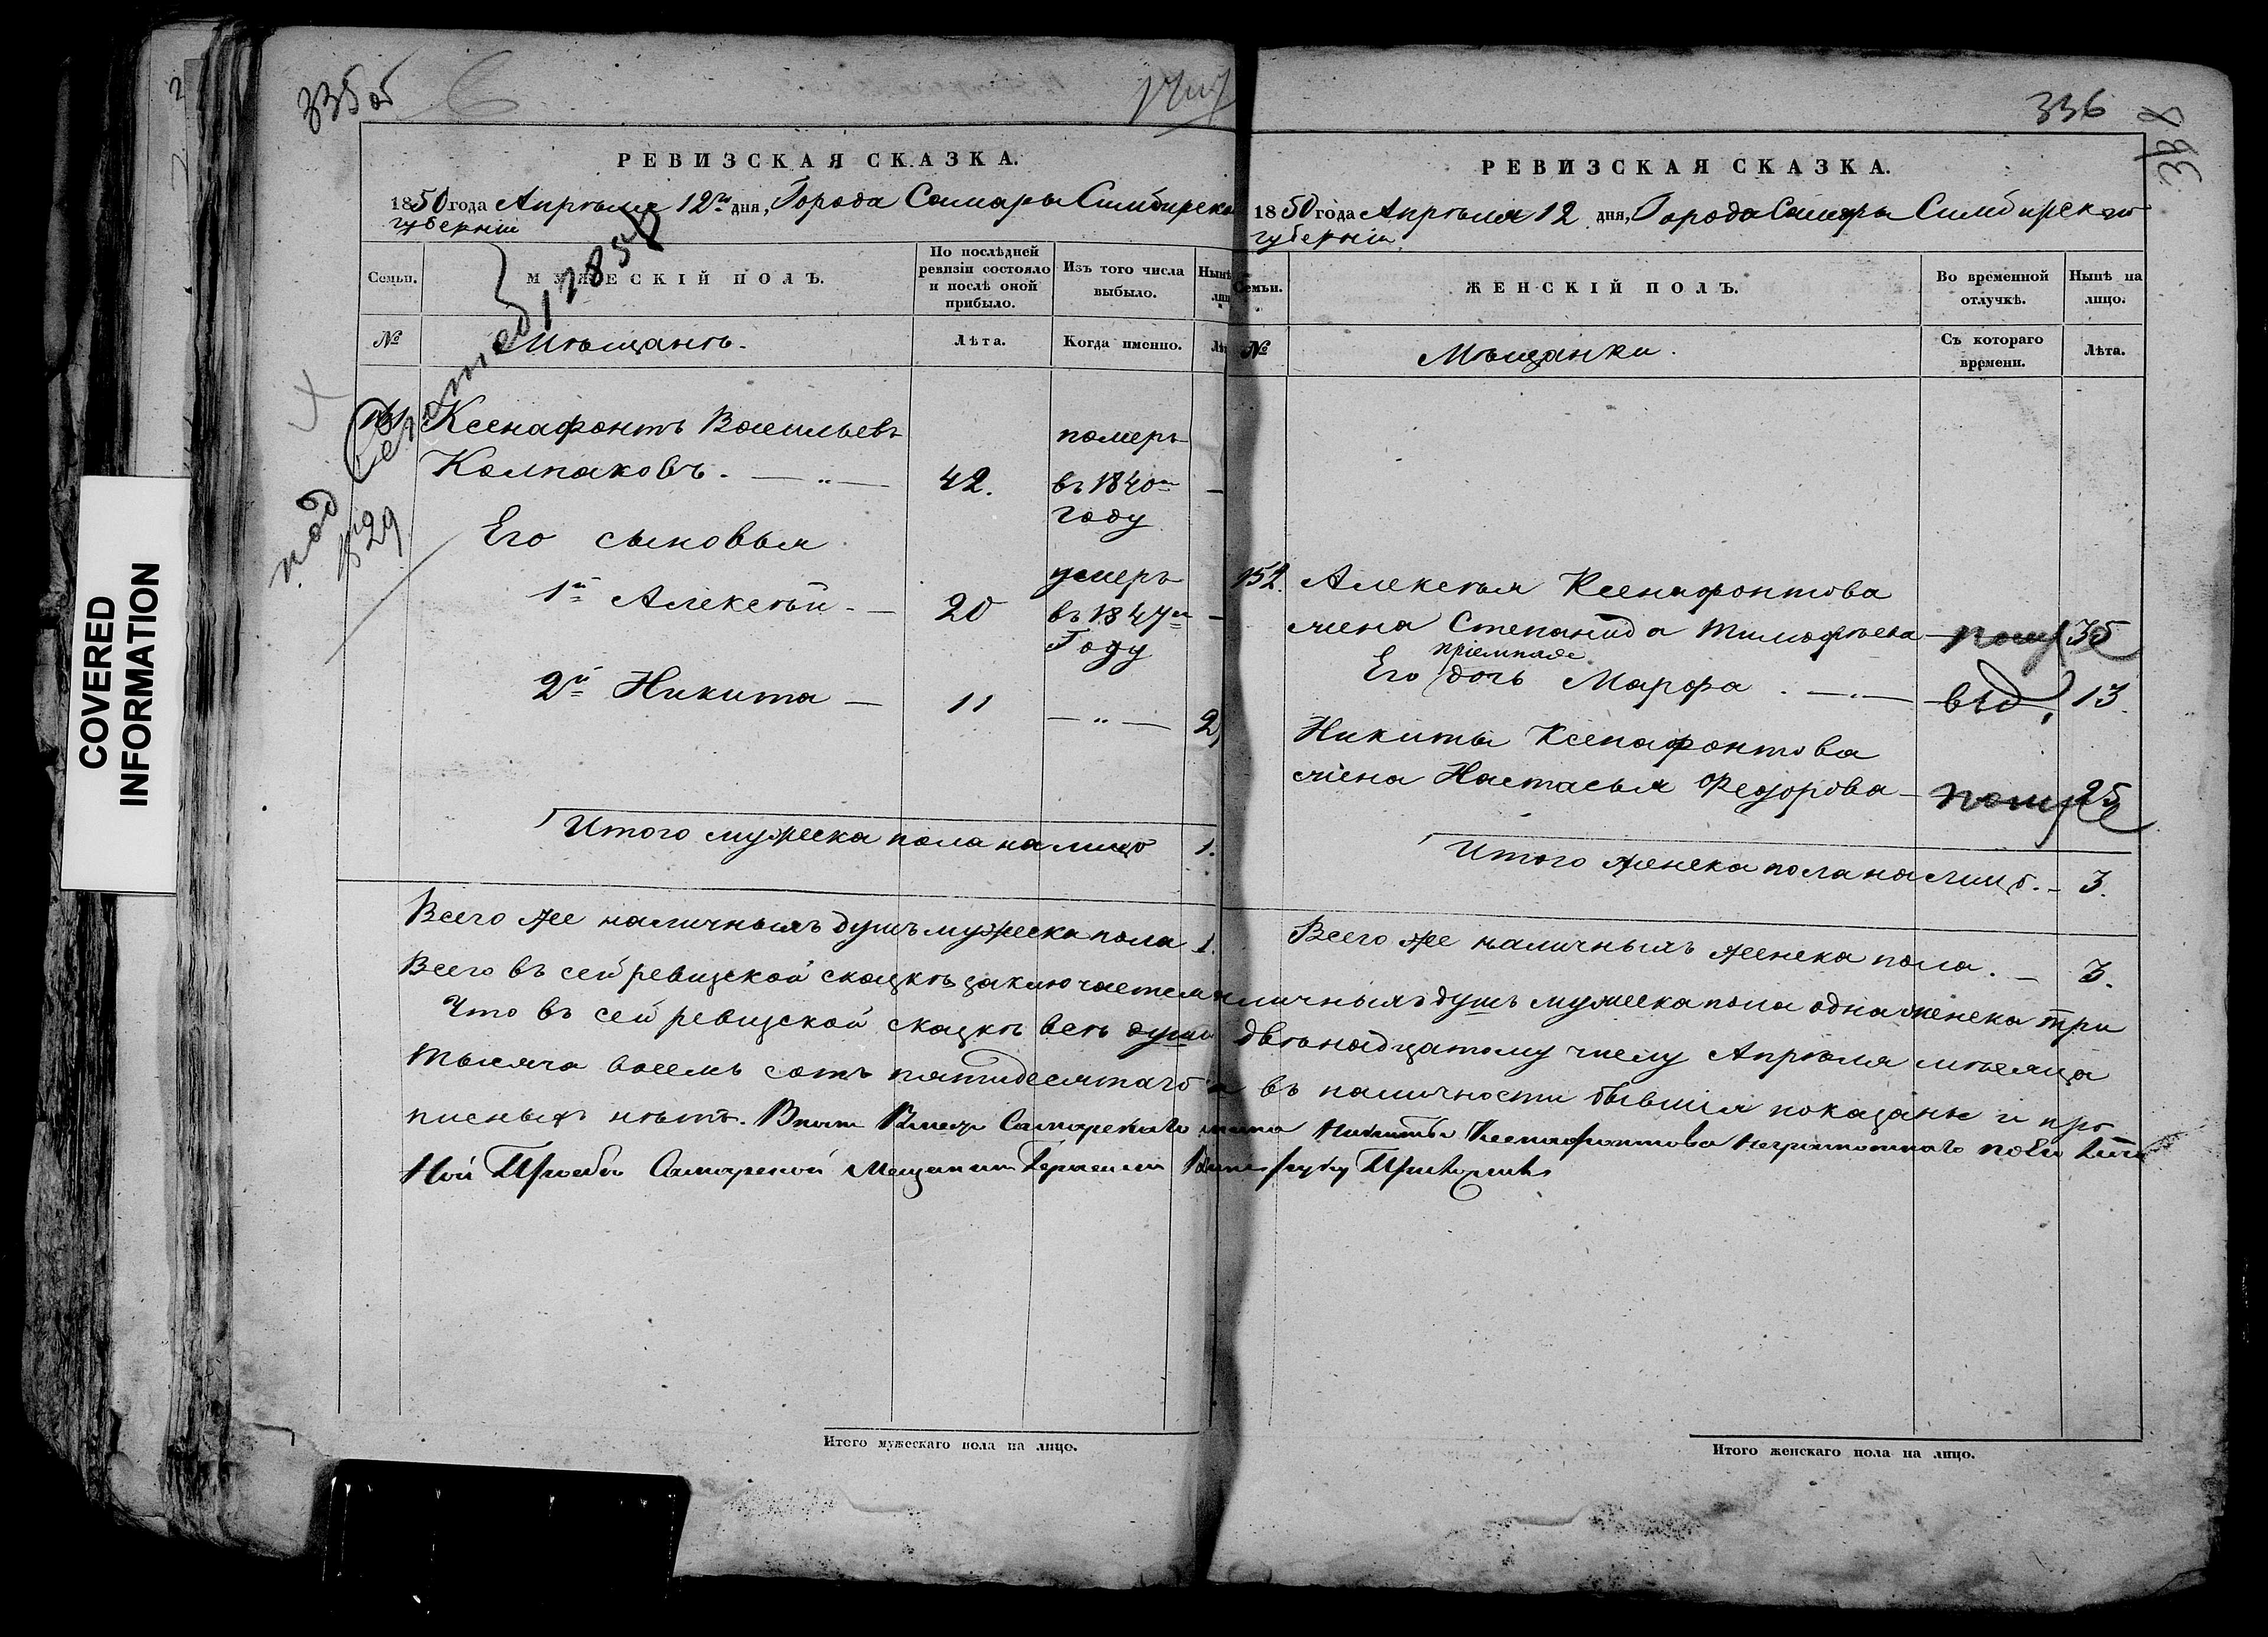 335 об
РЕВИЗСКАЯ СКАЗКА.
1850 года Апрѣля 12го дня, Города Самары Симбирско
губерніи
Семьи.
МУЖЕСКІЙ ПОЛЪ.
По послѣдней ревизіи состояло и послѣ оной прибыло.
Изъ того числа выбыло.
№
Мѣщанъ.
Лѣта.
Когда именно.
под
№ 29
Ксенафонтъ Васильевъ
померъ
Колпаковъ. — " —
42.
въ 1840м
году
Его сыновья
умеръ
1й Алексѣй. —
20
въ 1847м
Году
2й Никита —
11
— " —
Итого мужеска пола на лицо
1.
Всего же наличныхъ душъ мужеска пола 1.
COVERED
INFORMATION
Итого мужескаго пола на лицо.
336
338
РЕВИЗСКАЯ СКАЗКА.
1850 года Апрѣля 12 дня, Города Самары Симбирской
губерніи
Семьи.
ЖЕНСКІЙ ПОЛЪ.
Во временной отлучкѣ.
Нынѣ на лицо.
№
Мѣщанки.
Съ котораго времени.
Лѣта.
152.
Алексѣя Ксенафонтова
жена Степанида Тимофѣева —
35
пріемная
Его дочь Марфа . — " —
13.
Никиты Ксенафонтова
жена Настасья Федорова —
25
Итого женска пола на лицо. —
3.
Всего же наличныхъ женска пола. —
3.
Всего въ сей ревизской сказкѣ заключается наличныхъ душъ мужеска пола одна женска три
Что въ сей ревизской сказкѣ всѣ души двѣнадцатому числу Апрѣля мѣсяца
тысяча восемь сотъ пятидесятаго въ наличности бывшія показаны и про
писныхъ нѣтъ. Самарскаго Никиты Ксенафонтова неграматнаго по его лич
ной прозьбѣ Самарской мещанин руку приложилъ
Итого женскаго пола на лицо.